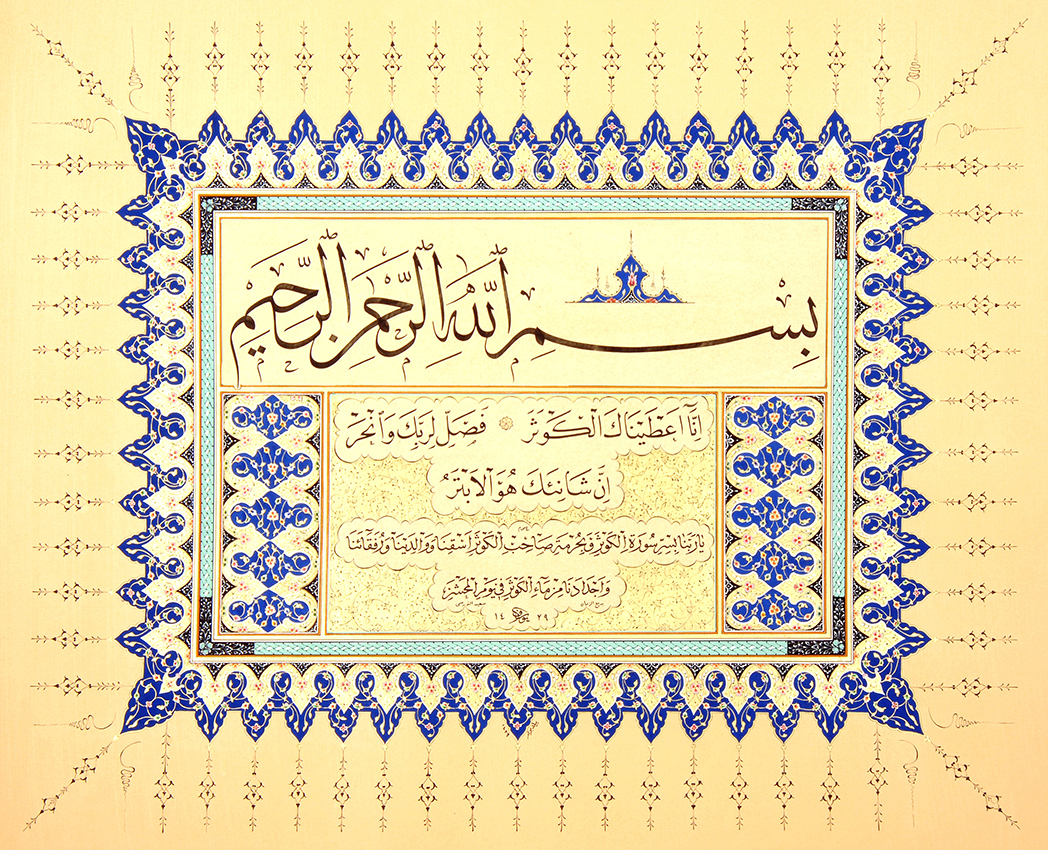 بِسْمِ اللهِ الرَّحْمٰنِ الرَّحِيمِ
اِنَّآ اَعْطَيْنَاكَ الْكَوْثَرَ ۞ فَصَلِّ لِرَبِّكَ وَانْحَرْ
اِنَّ شَانِئَكَ هُوَ الْاَبْتَرُ
يا ربنا بسر سورة الكوثر وبحرمة صاحب الكوثر اسقنا ووالدينا ورفقائنا
واجدادنا من ماء الكوثر في يوم المحشر
١٤٢٩